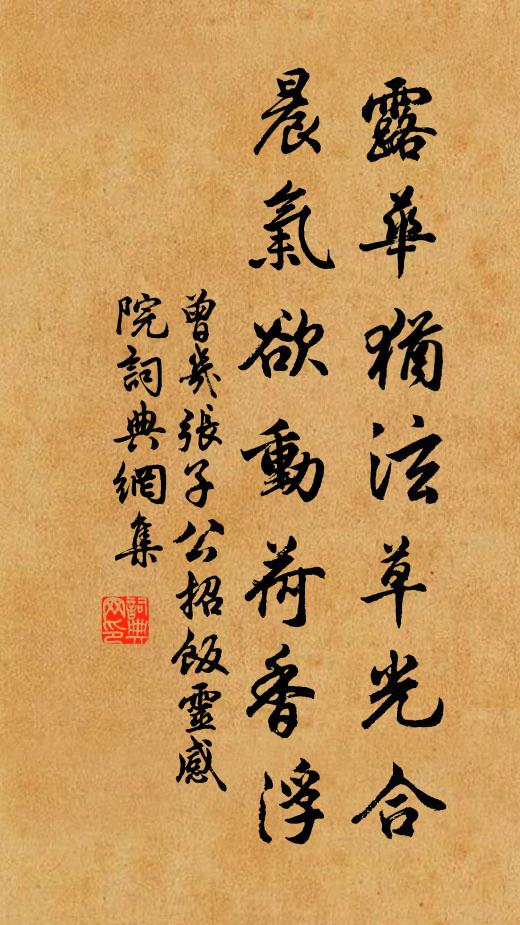 露華猶泫草光合
晨氣欲動荷香浮
曾幾張子公招飯靈感
院詞典網集
詞典
网印